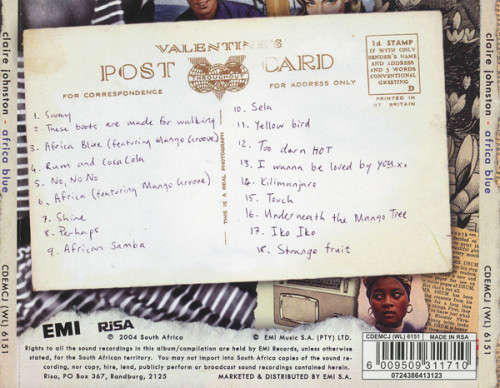 claire johnston · africa blue
CDEMCJ (WL) 6151
VALENTINE'S
POST CARD
THROUGHOUT
FOR CORRESPONDENCE
FOR ADDRESS ONLY
1d STAMP
IF WITH ONLY
SENDER'S NAME
AND ADDRESS
AND 5 WORDS
CONVENTIONAL
GREETING.
D
PRINTED IN
GT BRITAIN
THIS IS A REAL PHOTOGRAPH
1. Sway
2. These boots are made for walking
3. Africa Blue (featuring Mango Groove)
4. Rum and Coca Cola
5. No, No No
6. Africa (featuring Mango Groove)
7. Shine
8. Perhaps
9. African Samba
10. Sela
11. Yellow bird
12. Too darn HOT
13. I wanna be loved by you xx
14. Kilimanjaro
15. Touch
16. Underneath the Mango Tree
17. Iko Iko
18. Strange fruit
claire johnston · africa blue
CDEMCJ (WL) 6151
EMI RISA
℗ 2004 South Africa
© EMI Music S.A. (PTY) LTD.
Rights to all the sound recordings in this album/compilation are held by EMI Records, unless otherwise
stated, for the South African territory. You may not import into South Africa copies of the sound re-
cording, nor copy, hire, lend, publicly perform or broadcast sound recordings contained herein.
Risa, PO Box 367, Randburg, 2125
MARKETED & DISTRIBUTED BY EMI S.A.
CDEMCJ (WL) 6151
MADE IN RSA
6 009509 311710
0724386413123